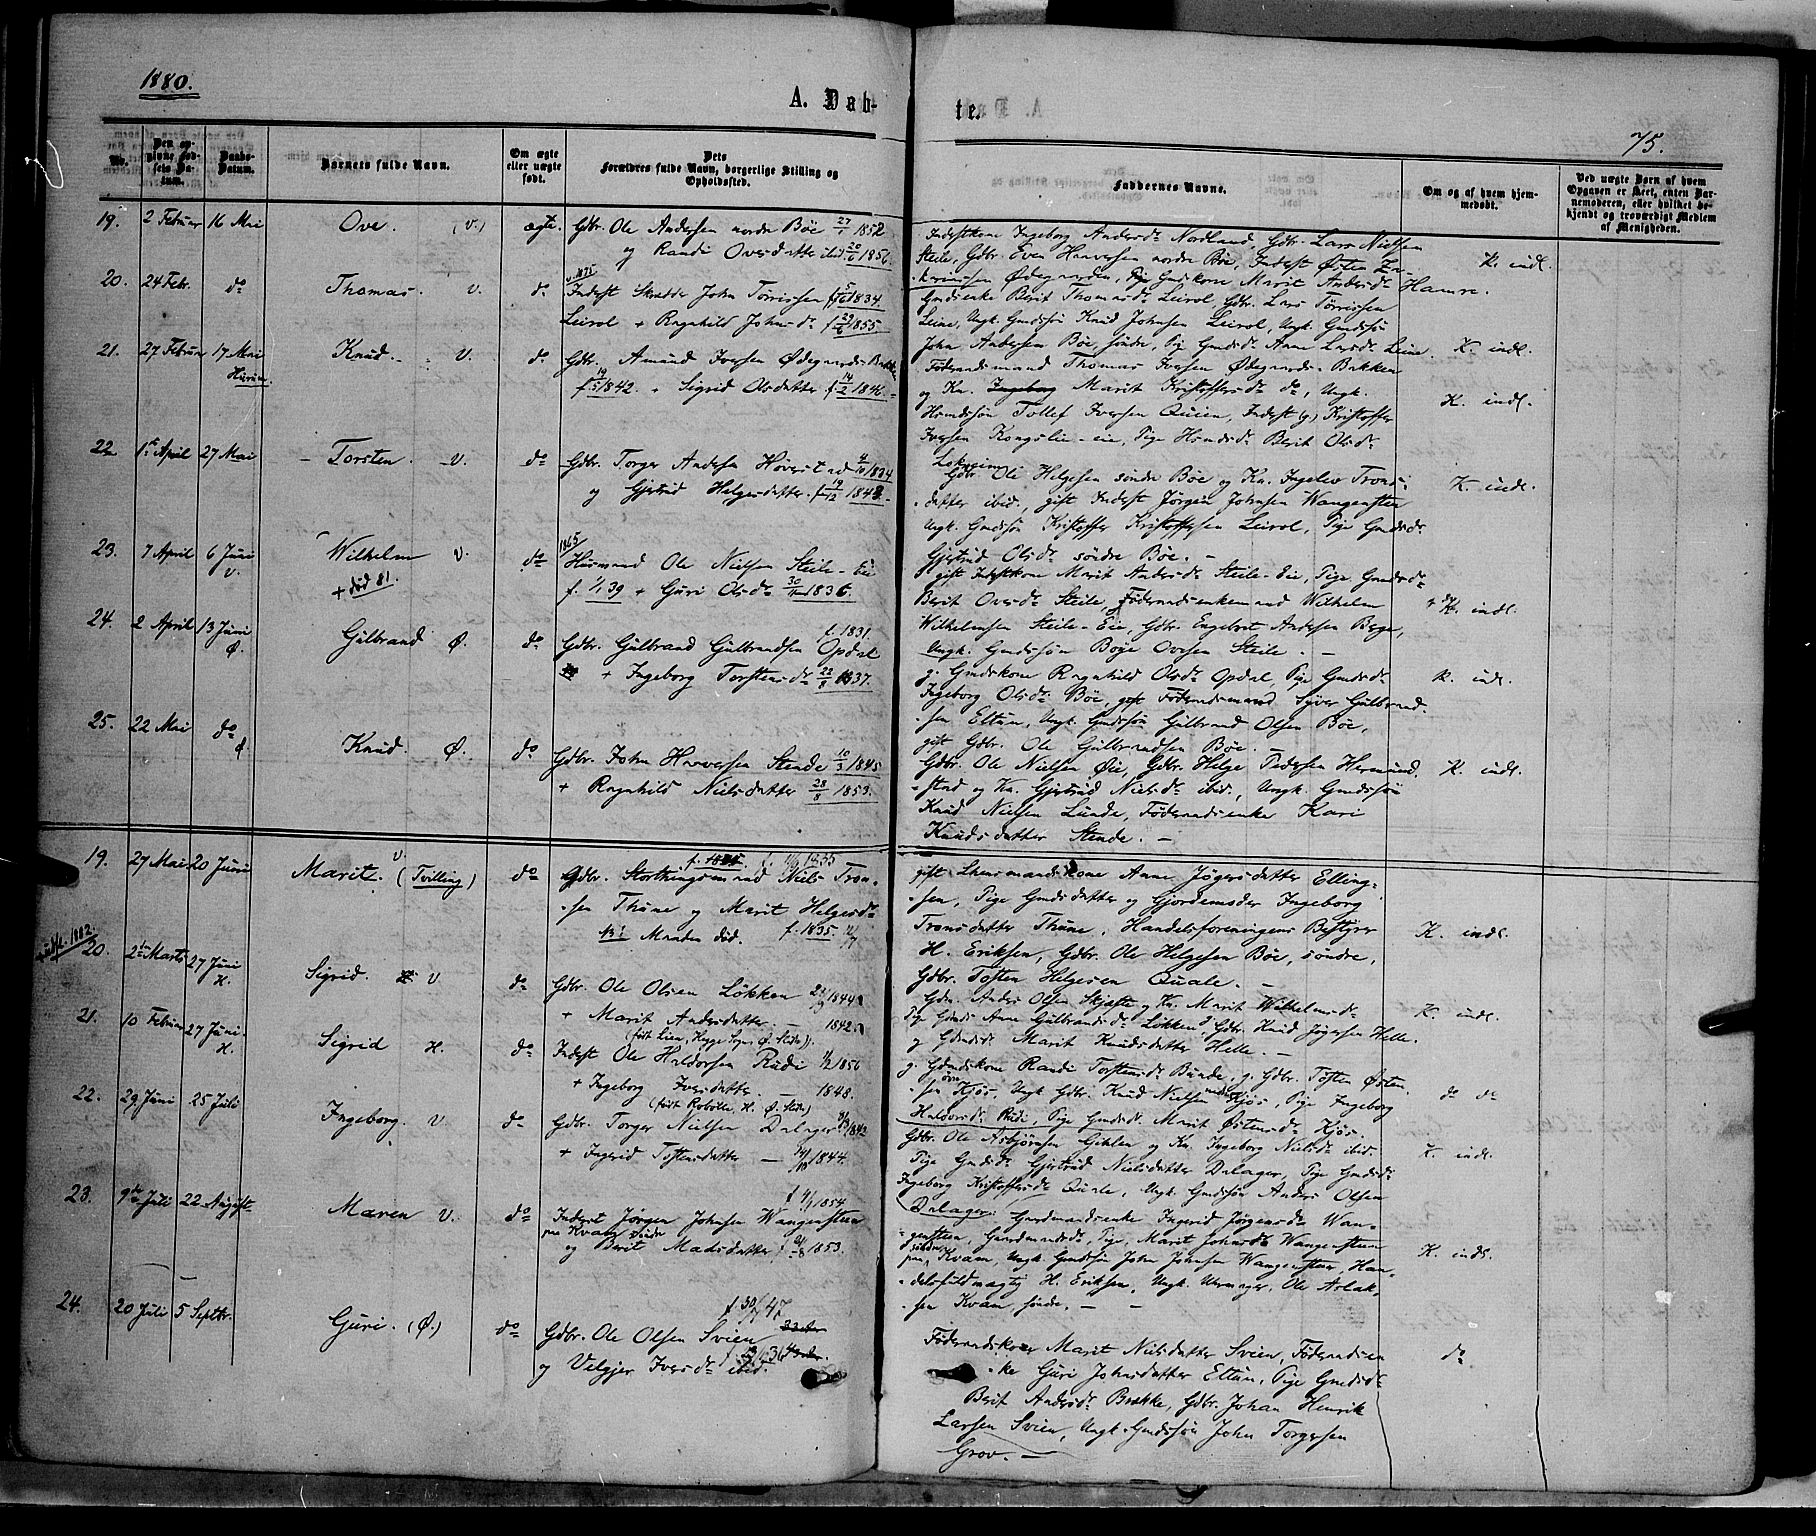 1880.
A. Døb-
te.
75.
No.
Den op-
givne Fød-
sels Da-
tum.
Daabs-
Datum.
Barnets fulde Navn.
Om ægte
eller uægte
født.
Dets
Forældres fulde Navn, borgerlige Stilling og
Opholdssted.
Faddernes Navne.
Om og af hvem hjem-
medøbt.
Ved uægte Børn af hvem
Opgaven er skeet, enten Bar-
nemoderen, eller hvilket be-
kjendt og troværdigt Medlem
af Menigheden.
19. 2 Februar 16 Mai Ove. (V.) ægte. Gdbr. Ole Andersen nordre Böe 27/1 1852
og Randi Ovesdatter ibid 20/6 1856.
Indestkone Ingeborg Andersdr Nordland, Gdbr. Lars Nielsen
Steile, Gdbr. Even Haavorsen nordre Böe, Inderst Østen
Ødegaarden, Pige Gmdskone Marit Andersdr Hamre.
K. indl.
20. 24 Febr. do Thomas. V. do Inderst Skrædder John Torrissen 1834.
Leirol + Ragnhild Johnsdr f 29/6 1855
Gmdsenke Berit Thomasdr Leirol, Gdbr. Lars Torrissen
Leine, Ungk. Gmdssön Knud Johnsen Leirol, Ungk. Gmdssön
John Andersen Böe söndre, Pige Gmdsdr Anne Larsdr Leine.
K. indl.
21. 27 Februar 17 Mai
Hurum.
Knud. V. do Gdbr. Amund Iversen Ødegaards-Bakken
f 19/5 1842 + Sigrid Olsdatter f 14/2 1846.
Föderaadsmand Thomas Iversen Ødegaards-Bakken
og Kn. Ingeborg Marit Kristoffersdr do, Ungk.
Hmdssön Tollef Iversen Quien, Inderst (g) Kristoffer
Iversen Kongslie-eie, Pige Hsmdsdr Berit Olsdr
K. indl.
22 1ste April 27 Mai Torsten. V. do Gdbr. Torger Andersen Höverstad 4/10 1834
og Gjertrud Helgesdatter f 19/12 1843
Gdbr. Ole Helgesen söndre Böe og Kn. Ingeleiv Trons-
datter ibid., gift Inderst Jörgen Johnsen Wangensten
Ungk. Gmdssön Kristoffer Kristoffersen Leirol, Pige Gmdsdr
Gjertrud Olsdr söndre Böe. -
K. indl.
23. 7 April 6 Juni
V.
Wilhelm V.
+ död 81.
do 1865
Husmand Ole Nielsen Steile-eie
f. 1/1 39 + Guri Olsdr 30/11 1836.
gift Indstkone Marit Andersdr Steile-Eie, Pige Gmdsdr
Berit Ovesdr Steile, Föderaadsenkemand Wilhelm
Wilhelmsen Steile-Eie, Gdbr. Engebret Andersen Berge,
Ungk. Gmdssön Böye Ovesen Steile. -
K. indl.
24. 2 April 13 Juni
Ø.
Gulbrand Ø. do Gdbr. Gulbrand Gulbrandsen Opdal f. 1831.
+ Ingeborg Torstensdr 22/8 1837.
g. Gmdskone Ragnhild Olsdr Opdal Pige Gmdsdr
Ingeborg Olsdr Böe, gift Föderaadsmand Syver Gulbrand-
sen Eltun, Ungk. Gmdssön Gulbrand Olsen Böe,
gift Gdbr. Ole Gulbrandsen Böe. -
K. indl.
25. 22 Mai do
Ø.
Knud. Ø. do Gdbr. John Havorsen Stende 10/3 1845
+ Ragnhild Nielsdatter 28/8 1853.
Gdbr. Ole Nielsen Øie, Gdbr. Helge Pedersen Hermund-
stad og Kn. Gjertrud Nielsdr ibid, Ungk. Gmdssön
Knud Nielsen Lunde, Föderaadsenke Kari
Knudsdatter Stende. -
K. indl.
19. 27 Mai 20 Juni Marit. V. (Tvilling) do Gdbr. Storthingsmand Niels Tron-
sen Thune og Marit Helgesdr
NB! Manden död. f. 1835
gift Lensmandskone Anne Jögersdatter Elling-
sen, Pige Gmdsdatter og Gjordemoder Ingeborg
Tronsdatter Thune, Handelsforeningens Bestyrer
H. Eriksen, Gdbr. Ole Helgesen Böe, söndre,
Gdbr. Tosten Helgesen Quale. -
K. indl.
1882.
20. 2den Marts 27 Juni
H.
Sigrid. V do Gdbr. Ole Olsen Lökken 1844
+ Marit Andersdatter 1842
(født Lien, Hegge Sogn, Ø. Slidre).
Gdm. Anders Olsen Skjefte og Kn. Marit Wilhelmsdr
Pige Gmdsdr Anne Gulbrandsdr Lökken, Gdbr. Knud Jögersen Helle
og Gdmsdr Marit Knudsdatter Helle. -
K. indl.
21. 10 Februar 27 Juni
H.
Sigrid H. do Inderst Ole Haldorsen Rudi 1/2 1856
+ Ingeborg Iversdatter 1848.
(født Robölle, H. Ø. Slidre)
g. Gdmdskone Randi Torstensdr Bunde, g. Gdbr. Tosten Østen-
sen Kjös, Ungk Gdbr. Knud Nielsen Kjös, Pige Ingeborg
Haldorsdr Rudi, Pige Gmdsdr Marit Østensdr Kjös.
do do
22. 29 Juni 25 Juli Ingeborg. V. do Gdbr. Torger Nielsen Dalager 1842
+ Ingerid Tostensdatter - 1844.
Gdbr. Ole Asbjörnsen Gihlen og Kn. Ingeborg Nielsdr ibid.
Pige Gmdsdr Gjertrud Nielsdatter Dalager, Pige Gmdsdr
Ingeborg Kristoffersdr Quale, Ungk. Gmdssön Anders Olsen
Dalager.
K. indl.
23. 9de Juli 22 August Maren V. do Inderst Jörgen Johnsen Wangensteen f 4/9 1854.
paa Kvam söndre
og Berit Madsdatter f 1853.
Gaardmandsenke Ingerid Jörgensdr Wan-
gensteen, Gaardmandsdr, Pige, Marit Johnsdr Wangensteen
paa söndre Kvam, Ungk. Gmdssön John Johnsen Wangensteen, Han-
delsfuldmægtig H. Eriksen, Ungk. Urmager, Ole Aslak-
sen Kvam, söndre. - -
K. indl.
24. 20 Juli 5 Septbr. Guri. (Ø.) do Gdbr. Ole Olsen Svien f 30/7 47
og Velgjer Iversdr ibid.
Föderaadskone Marit Nielsdatter Svien, Föderaadsen-
ke Guri Johnsdatter Eltun, Pige Gmdsdr
Berit Andersdr Brække, Gdbr. Johan Henrik
Larsen Svien, Ungk. Gmdssön John Torgersen
Grov. -
do